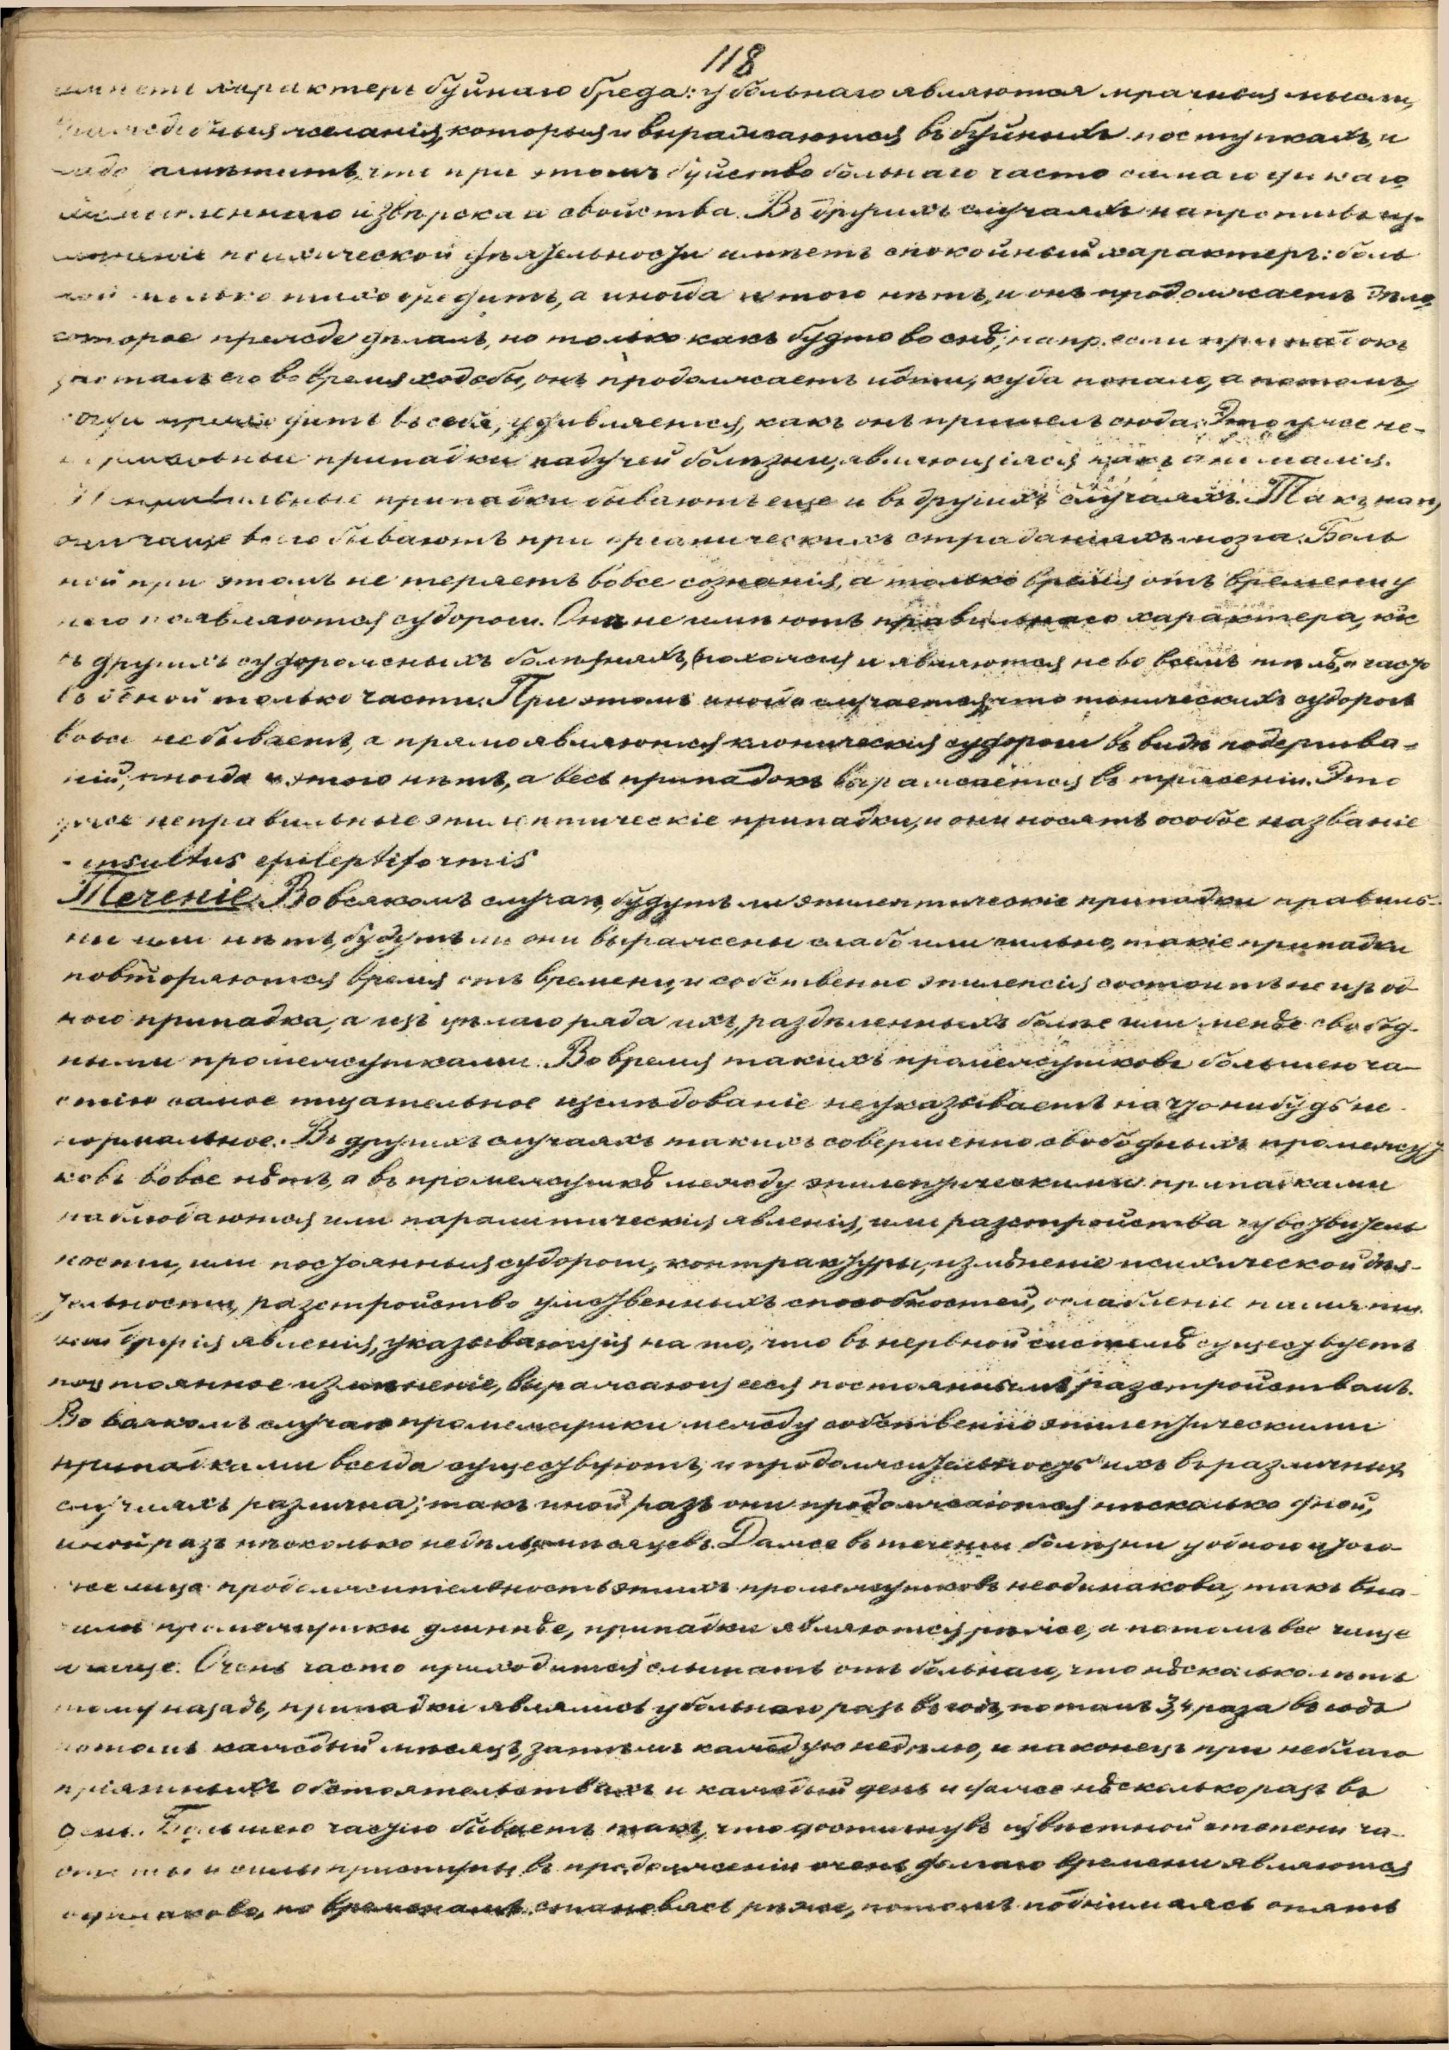 118
имѣетъ характеръ буйнаго бреда: у больнаго являются мрачныя мысли,
желанія, которыя и выражаются въ буйныхъ поступкахъ, и
надо замѣтить, что при этомъ буйство больнаго часто самаго дикаго
и звѣрскаго свойства. Въ другихъ случаяхъ напротивъ из-
мѣненіе психической дѣятельности имѣетъ спокойный характеръ: боль
ной только тихо бредитъ, а иногда и того нѣтъ, и онъ продолжаетъ дѣло
которое прежде дѣлалъ, но только какъ будто во снѣ; напр. если припадокъ
засталъ его во время ходьбы, онъ продолжаетъ идти, куда попало, а потомъ,
когда приходитъ въ себя, удивляется, какъ онъ пришелъ сюда. Это уже не-
нормальные припадки падучей болѣзни, являющіяся какъ аномалія.
Неправильные припадки бываютъ еще и въ другихъ случаяхъ. Такъ нап,
они чаще всего бываютъ при органическихъ страданіяхъ мозга. Боль
ной при этомъ не теряетъ вовсе сознанія, а только время отъ времени у
него появляются судороги. Они не имѣютъ правильнаго характера, как
въ другихъ судорожныхъ болѣзняхъ, похожія и являются не во всемъ тѣлѣ, а часто
въ одной только части. При этомъ иногда случается, что тоническихъ судорогъ
вовсе не бываетъ, а прямо являются клоническія судороги въ видѣ подергива-
ній, иногда и этого нѣтъ, а весь припадокъ выражается въ трясеніи. Это
уже неправильные эпилептическіе припадки, и они носятъ особое названіе
- insultus epileptiformis
Теченіе. Во всякомъ случаѣ, будутъ ли эпилептическіе припадки правиль-
ны или нѣтъ, будутъ ли они выражены слабо или сильно, такіе припадки
повторяются время отъ времени, и собственно эпилепсія состоитъ не изъ од
ного припадка, а изъ цѣлаго ряда ихъ, раздѣленныхъ болѣе или менѣе свобод-
ными промежутками. Во время такихъ промежутковъ большею ча-
стію самое тщательное изслѣдованіе не указываетъ на что нибудь не
нормальное. Въ другихъ случаяхъ такихъ совершенно свободныхъ промежут
ковъ вовсе нѣтъ, а въ промежуткѣ между эпилептическими припадками
наблюдаются или паралитическія явленія, или разстройства чувствитель
ности, или постоянныя судороги, контрактуры, измѣненіе психической дѣя-
тельности, разстройство умственныхъ способностей, ослабленіе памяти
или другія явленія, указывающія на то, что въ нервной системѣ существуетъ
постоянное измѣненіе, выражающееся постояннымъ разстройствомъ.
Во всякомъ случаѣ промежутки между собственно эпилептическими
припадками всегда существуютъ, и продолжительность ихъ въ различныхъ
случаяхъ различна; такъ иной разъ они продолжаются нѣсколько дней,
иной разъ нѣсколько недѣль, мѣсяцевъ. Далѣе въ теченіи болѣзни у одного и того
же лица продолжительность этихъ промежутковъ неодинакова, такъ вна-
чалѣ промежутки длиннѣе, припадки являются рѣже, а потомъ все чаще
и чаще. Очень часто приходится слышать отъ больнаго, что нѣсколько лѣтъ
тому назадъ, припадки являлись у больнаго разъ въ годъ, потомъ 3, 4 раза въ годъ
потомъ каждый мѣсяцъ, затѣмъ каждую недѣлю, и наконецъ при неблаго
пріятныхъ обстоятельствахъ и каждый день и даже нѣсколько разъ въ
день. Большею частію бываетъ такъ, что достигнувъ извѣстной степени ча-
стоты и силы приступы въ продолженіи очень долгаго времени являются
одинаково, по временамъ становясь рѣже, потомъ поднимаясь опять